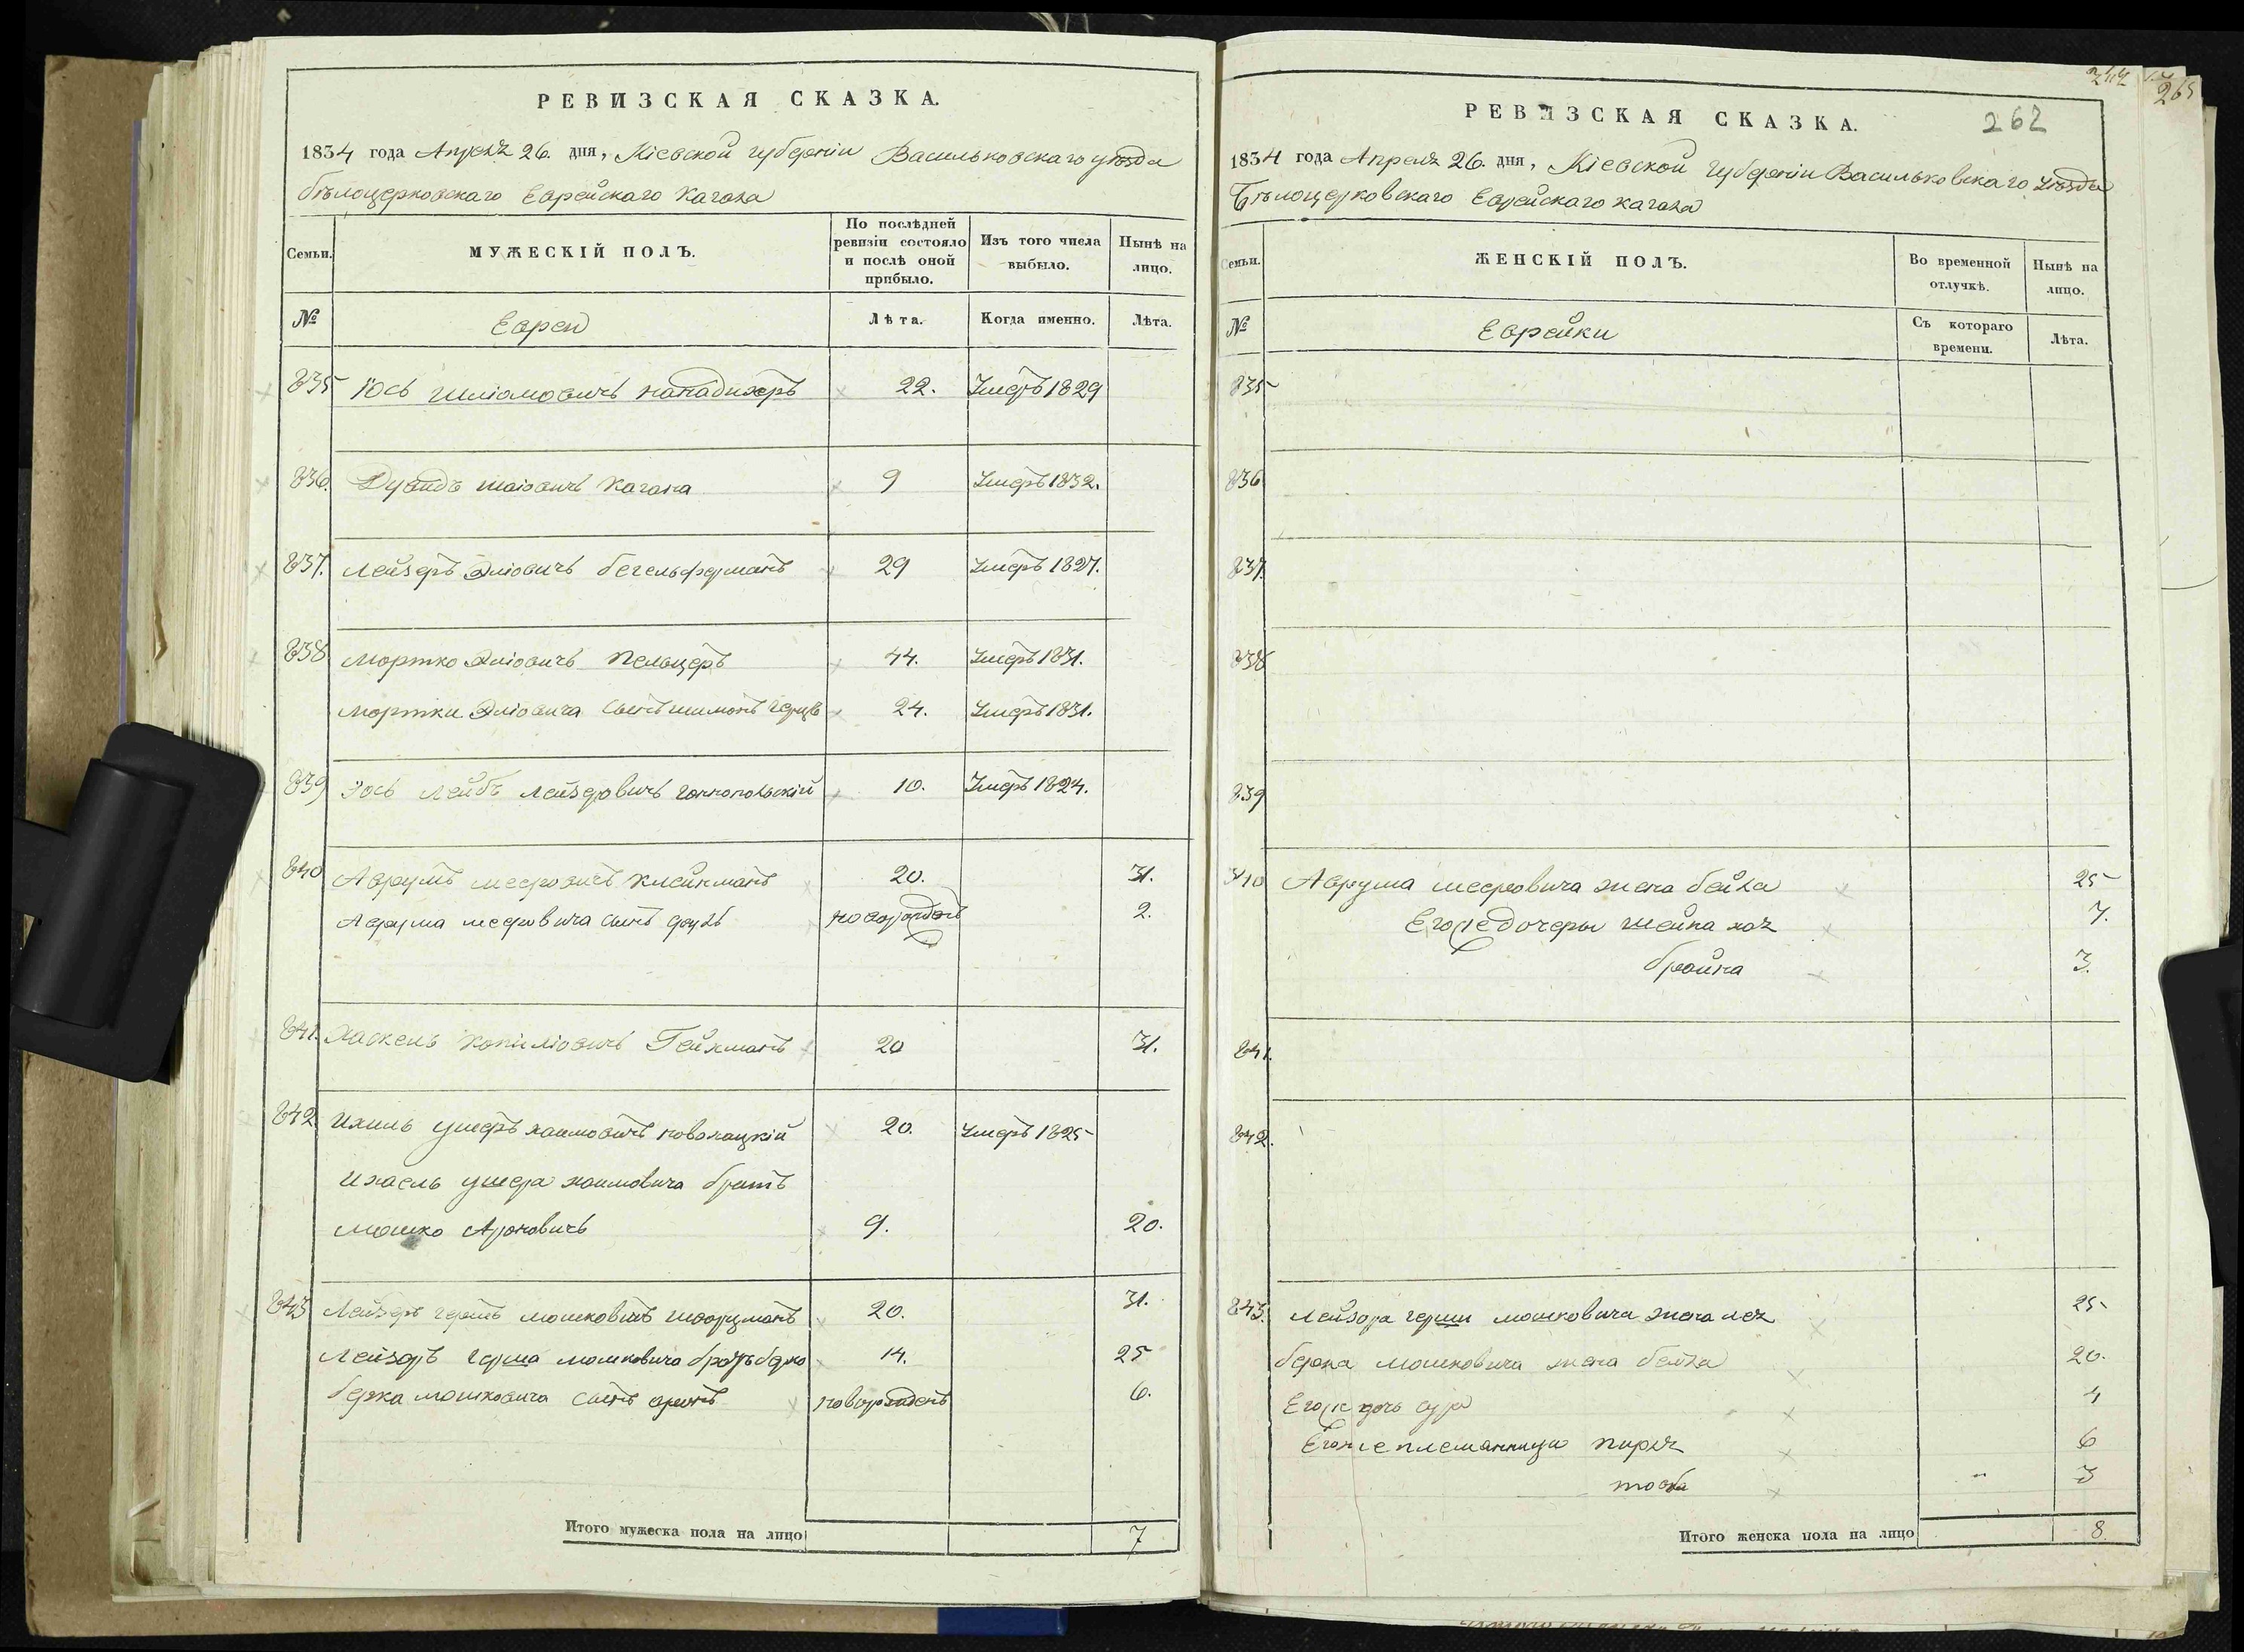 РЕВИЗСКАЯ СКАЗКА.
1834 года Апреля 26. дня, Кіевской губерніи Васильковскаго уѣзда
бѣлоцерковскаго Еврейскаго кагала
Семьи.
МУЖЕСКІЙ ПОЛЪ.
По послѣдней ревизіи состояло и послѣ оной прибыло.
Изъ того числа выбыло.
Нынѣ на лицо.
№
Евреи
Лѣта.
Когда именно.
Лѣта.
835 Іось Шліомовичъ 22. Умеръ 1829
836. Дувидъ шаіовичъ Кагана 9 Умеръ 1832.
837. Лейзеръ Эліовичъ бегельферманъ 29 Умеръ 1827.
838 Мортко Эліовичъ Пельцеръ 44. Умеръ 1831.
Мортки Эліовича сынъ шимонъ герцъ 24. Умеръ 1831.
839 Іось Лейбъ Лейзеровичъ 10. Умеръ 1824.
840 Аврумъ мееровичъ Клейнманъ 20. 31.
Аврума мееровича сынъ новорожденъ 2.
841. Хаскель Копиліовичъ Гейхманъ 20 31.
842. Ихиль ушеръ хаимовичъ 20. Умеръ 1825
Ихаель ушера хаимовича братъ
мошко Ароновичъ 9. 20.
843 Лейзеръ гершъ мошковичъ шварцманъ 20. 31.
Лейзеръ герша мошковича братъ берко 14. 25
берка мошковича сынъ аронъ новорожденъ 6.
Итого мужеска пола на лицо 7
244
265
262
РЕВИЗСКАЯ СКАЗКА.
1834 года Апреля 26. дня, Кіевской губерніи Васильковскаго уѣзда
Бѣлоцерковскаго Еврейскаго кагала
Семьи.
ЖЕНСКІЙ ПОЛЪ.
Во временной отлучкѣ.
Нынѣ на лицо.
№
Еврейки
Съ котораго времени.
Лѣта.
835
836
837.
838
839
840 Аврума мееровича жена бейла 25
Его же дочеры шейна хая 7.
бройна 3.
841.
842.
843. Лейзора герши мошковича жена лея 25
берка мошковича жена бейла 20.
Его же дочь сура 4
Его же племянницы пирля 6
тоба " 3
Итого женска пола на лицо 8.